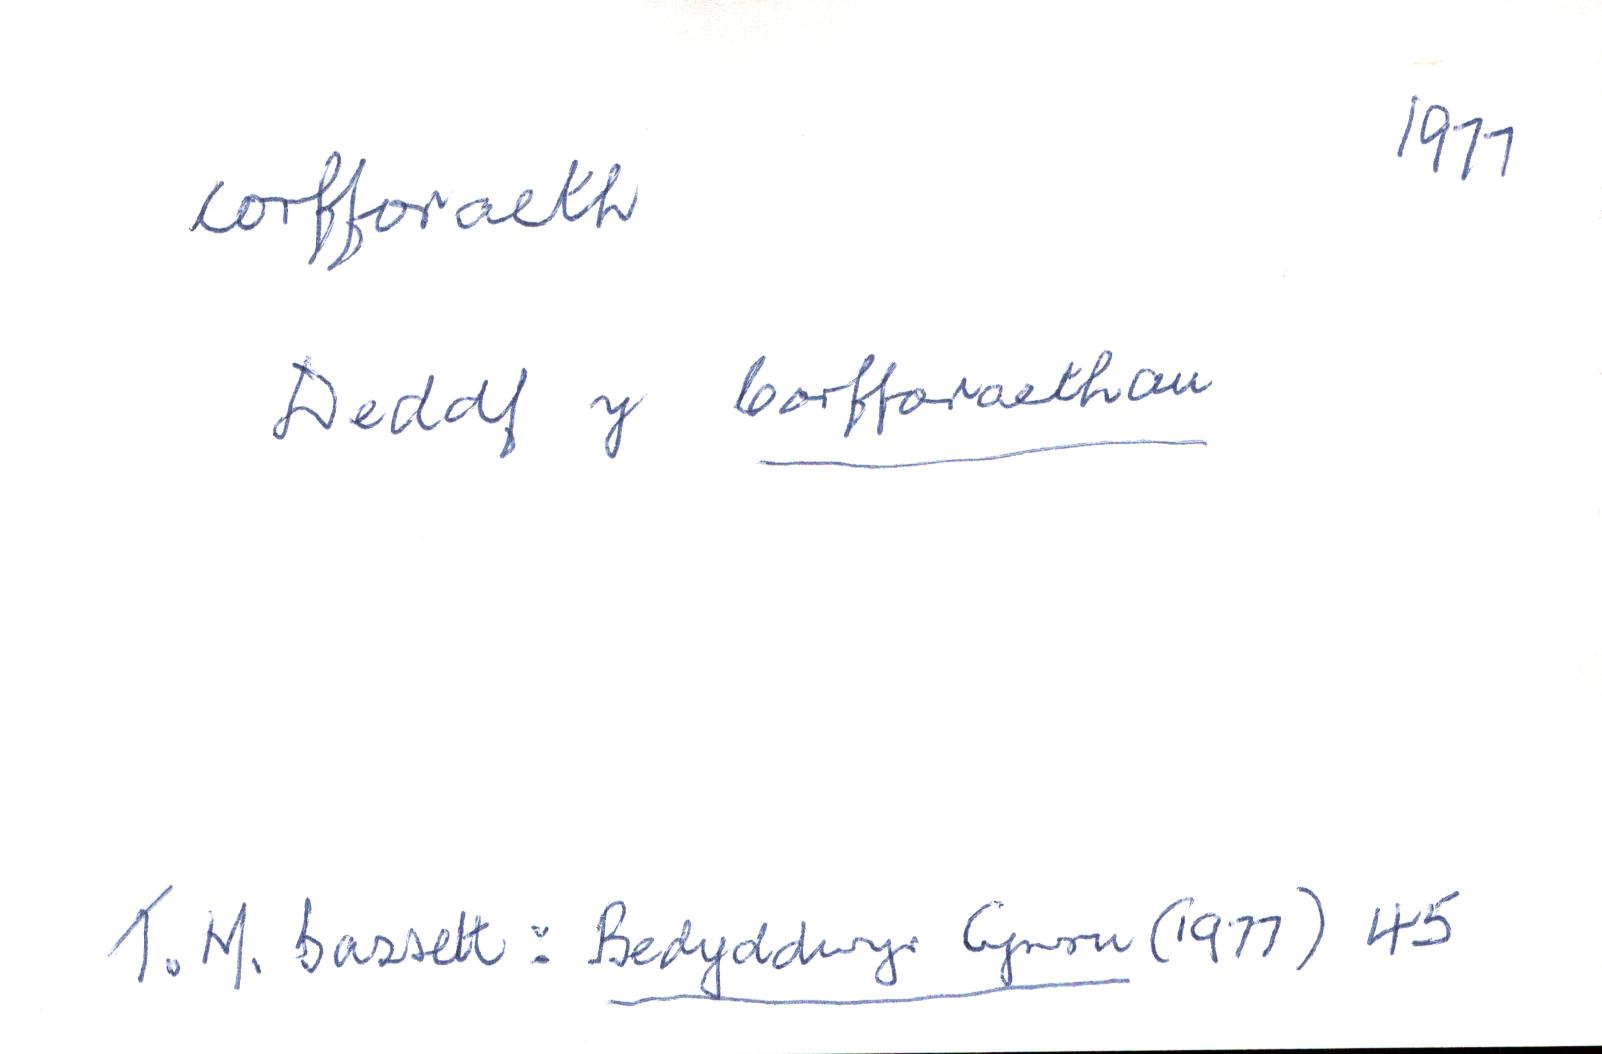 1977
corfforaeth
Deddf y Corfforaethau
T. M. Bassett : Bedyddwyr Cymru (1977) 45